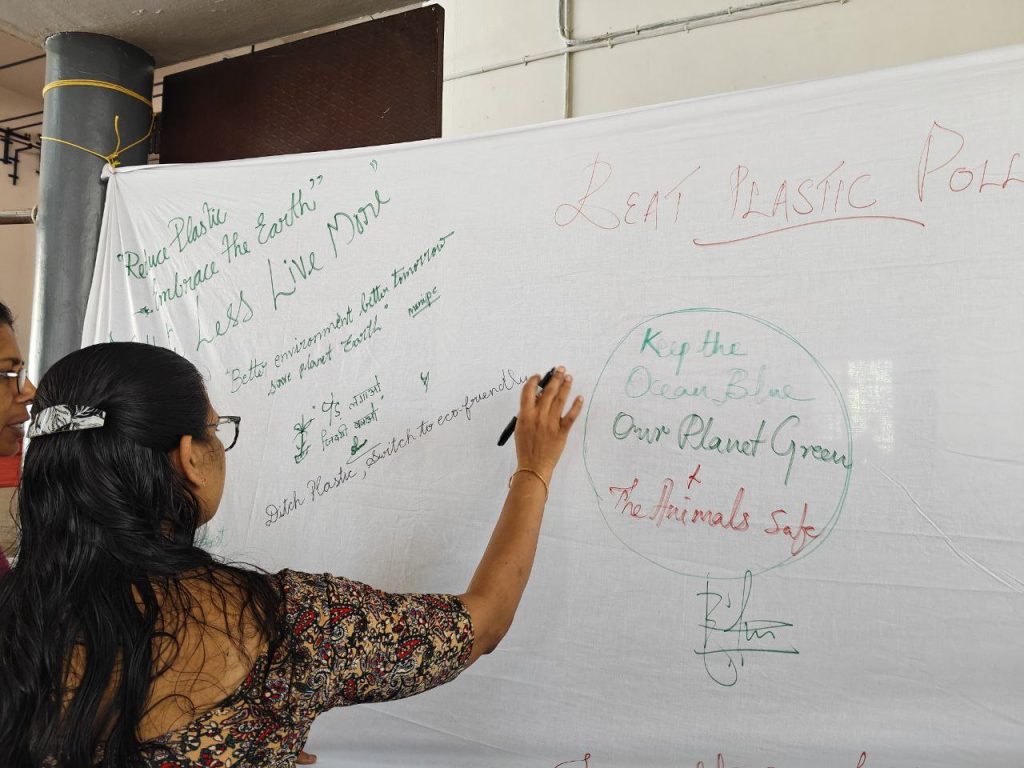 "Reduce Plastic
Embrace the Earth"
Less Live More"
"Better environment better tomorrow
save planet Earth"
"पेड़ लगाओ
Ditch Plastic, Switch to eco-friendly
BEAT PLASTIC POLL
Keep the
Ocean Blue
Our Planet Green
&
The Animals Safe